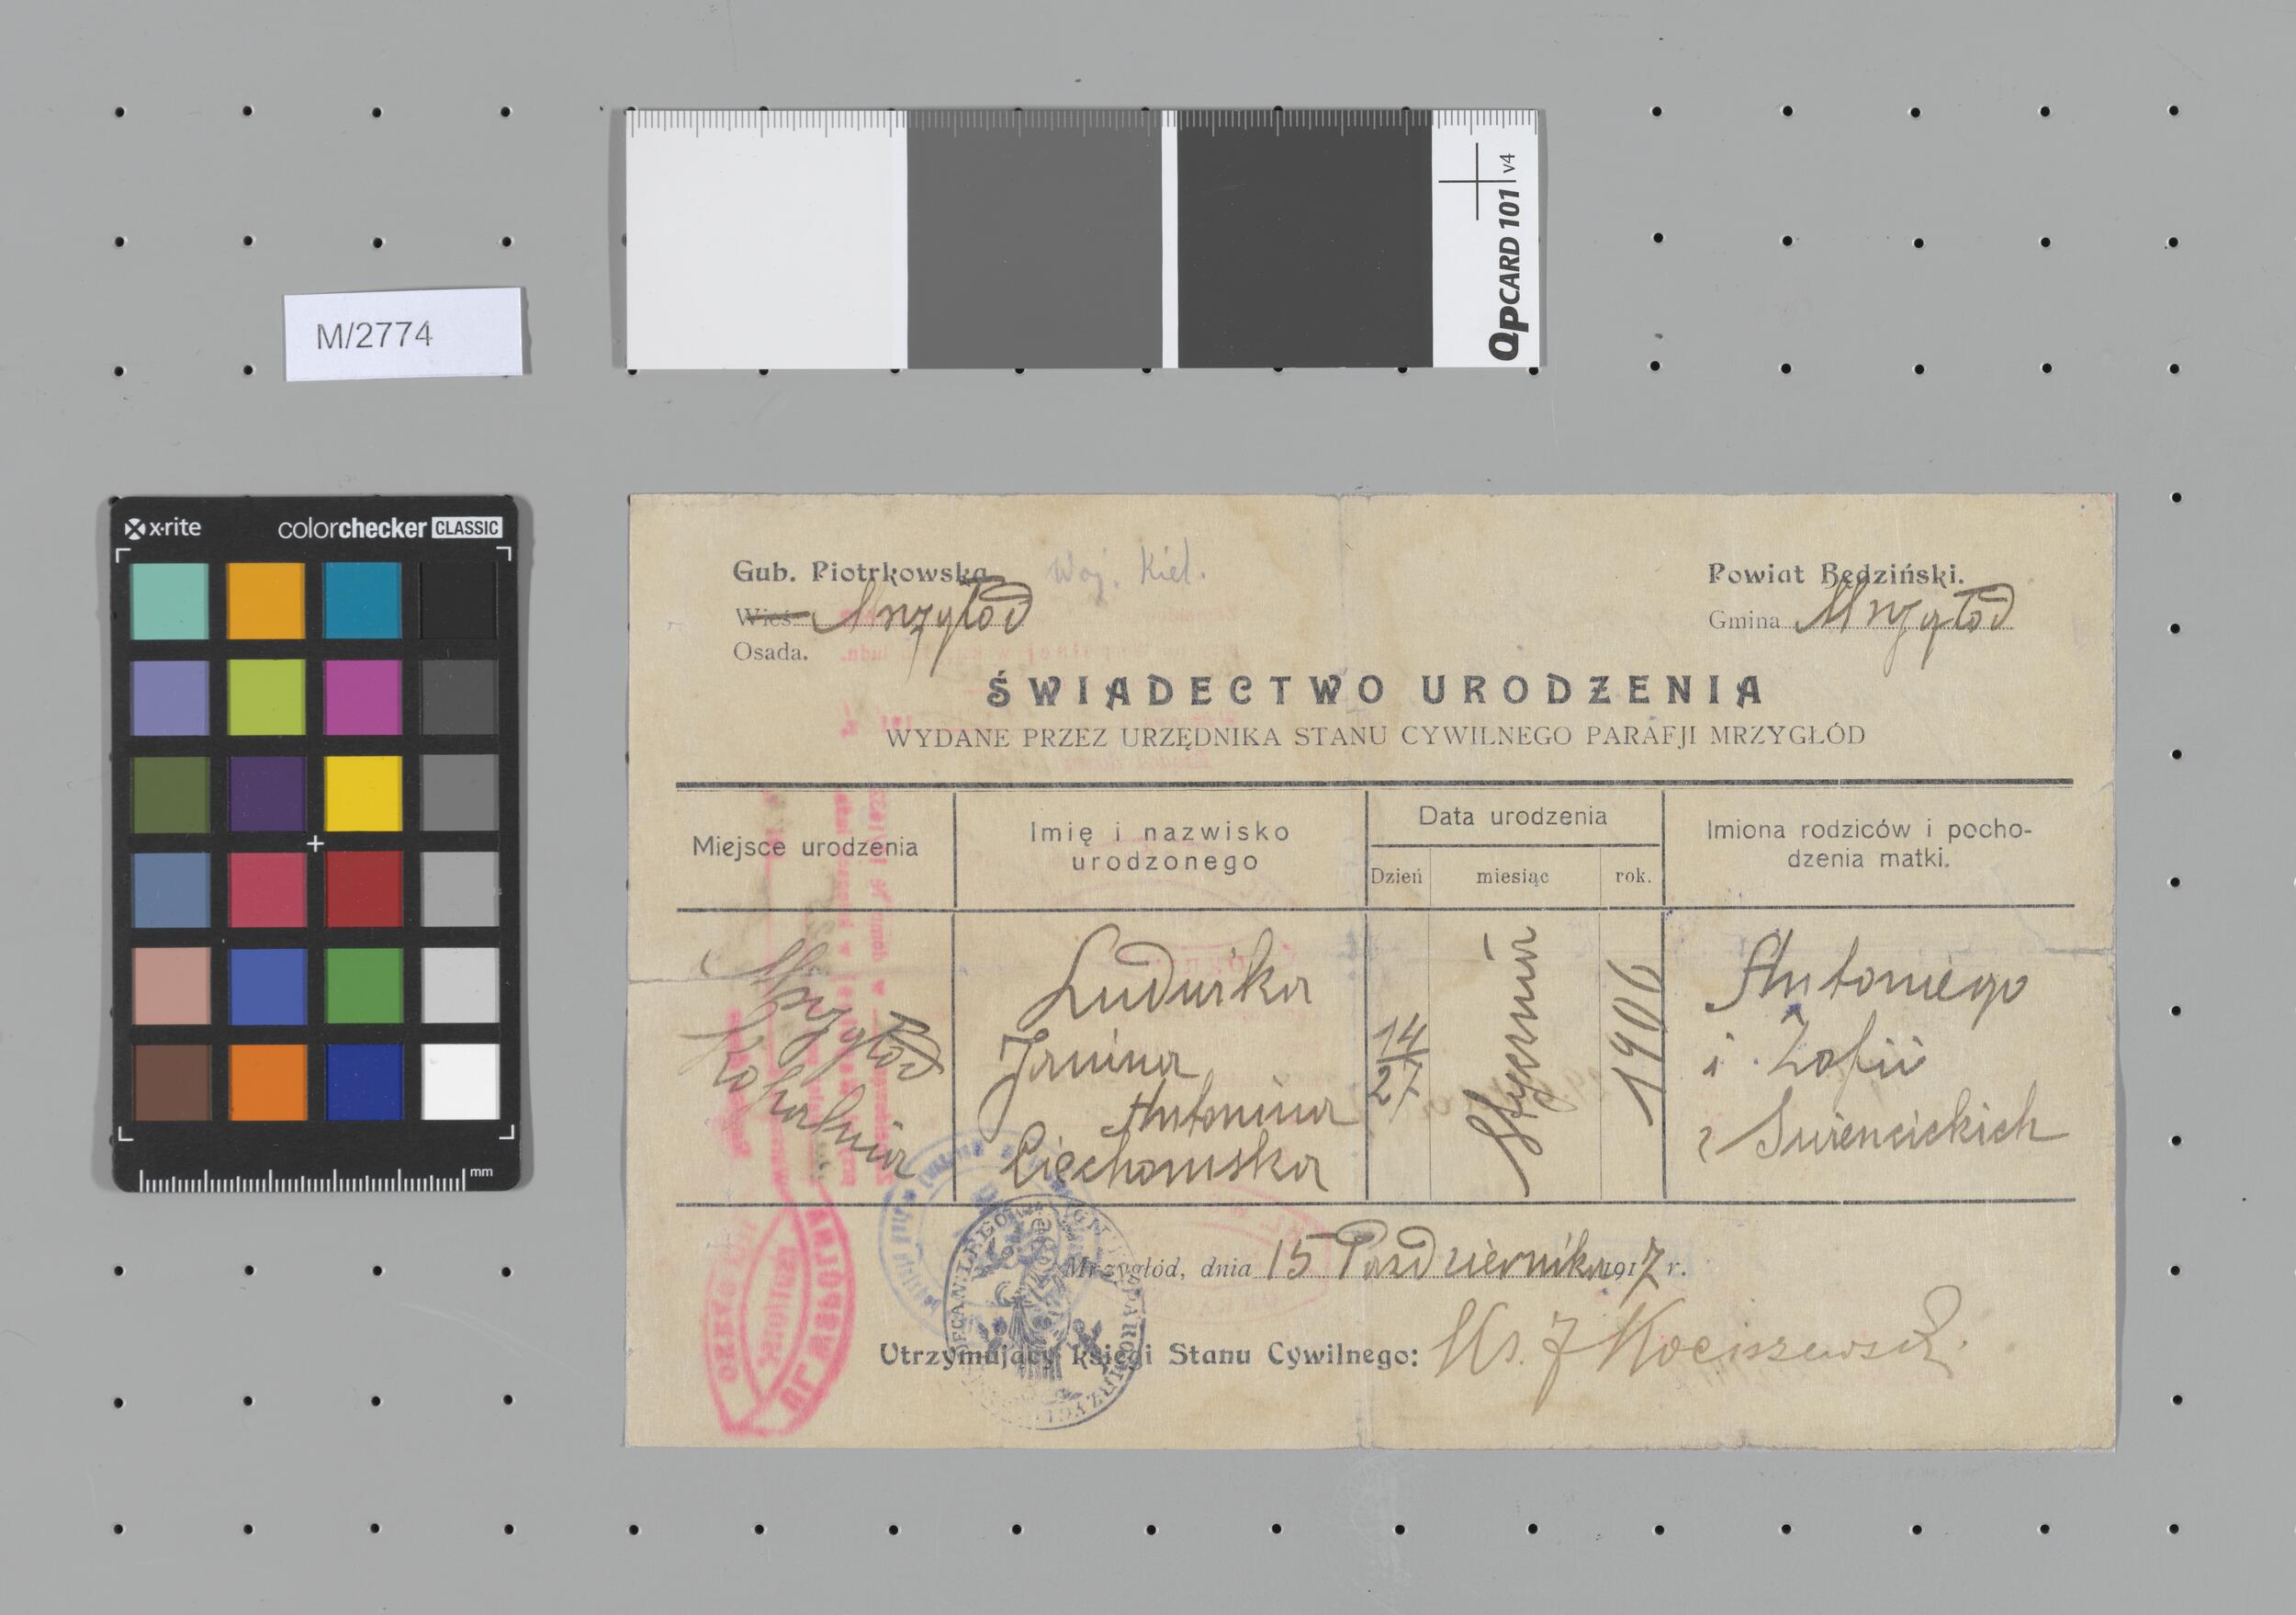 QPCARD 101 v4
M/2774
x·rite colorchecker CLASSIC
mm
Gub. Piotrkowska Woj. Kiel. Powiat Będziński.
Wieś Mrzygłód Gmina Mrzygłód
Osada.
ŚWIADECTWO URODZENIA
WYDANE PRZEZ URZĘDNIKA STANU CYWILNEGO PARAFJI MRZYGŁÓD
Miejsce urodzenia
Imię i nazwisko
urodzonego
Data urodzenia
Dzień miesiąc rok.
Imiona rodziców i pocho-
dzenia matki.
Mrzygłód
Ludwika
Janina
Antonina
Ciechowska
14
27
Stycznia
1906
Antoniego
i Zofii
z
Mrzygłód, dnia 15 Października 1917 r.
Utrzymujący księgi Stanu Cywilnego: Ks. J